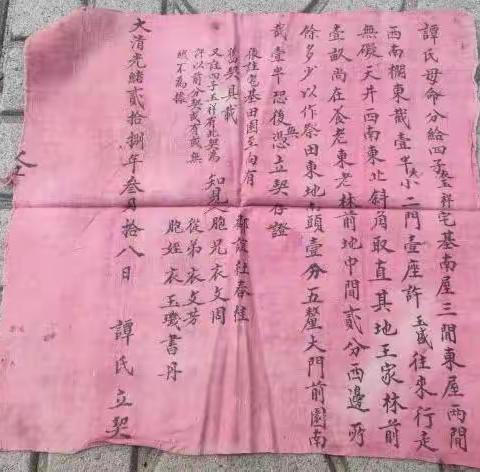 譚氏母命分給四子玉祥宅基南屋三間東屋兩間
西南棚東截壹半大小二門壹座許 往來行走
無礙天井西南東北斜角取直其地王家林前
壹畝尚在養老東老林前地中間貳分西邊所
餘多少以作祭田東地南頭壹分五釐大門前園南
截壹半恐後無憑立契存證
張 宅基田園至向有
舊契具載
又註四子玉祥有此契為
許以前分契或有或無
照不為據
知見人
鄰誼杜春陞
胞兄衣文周
從弟衣文芳
胞姪衣玉璣書丹
大清光緒貳拾捌年叁月拾八日 譚氏立契